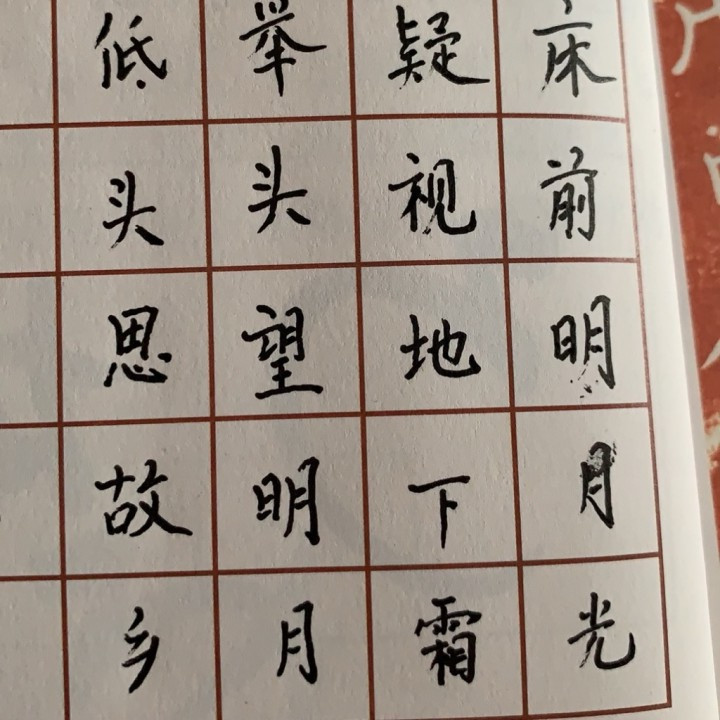 床前明月光
疑视地下霜
举头望明月
低头思故乡